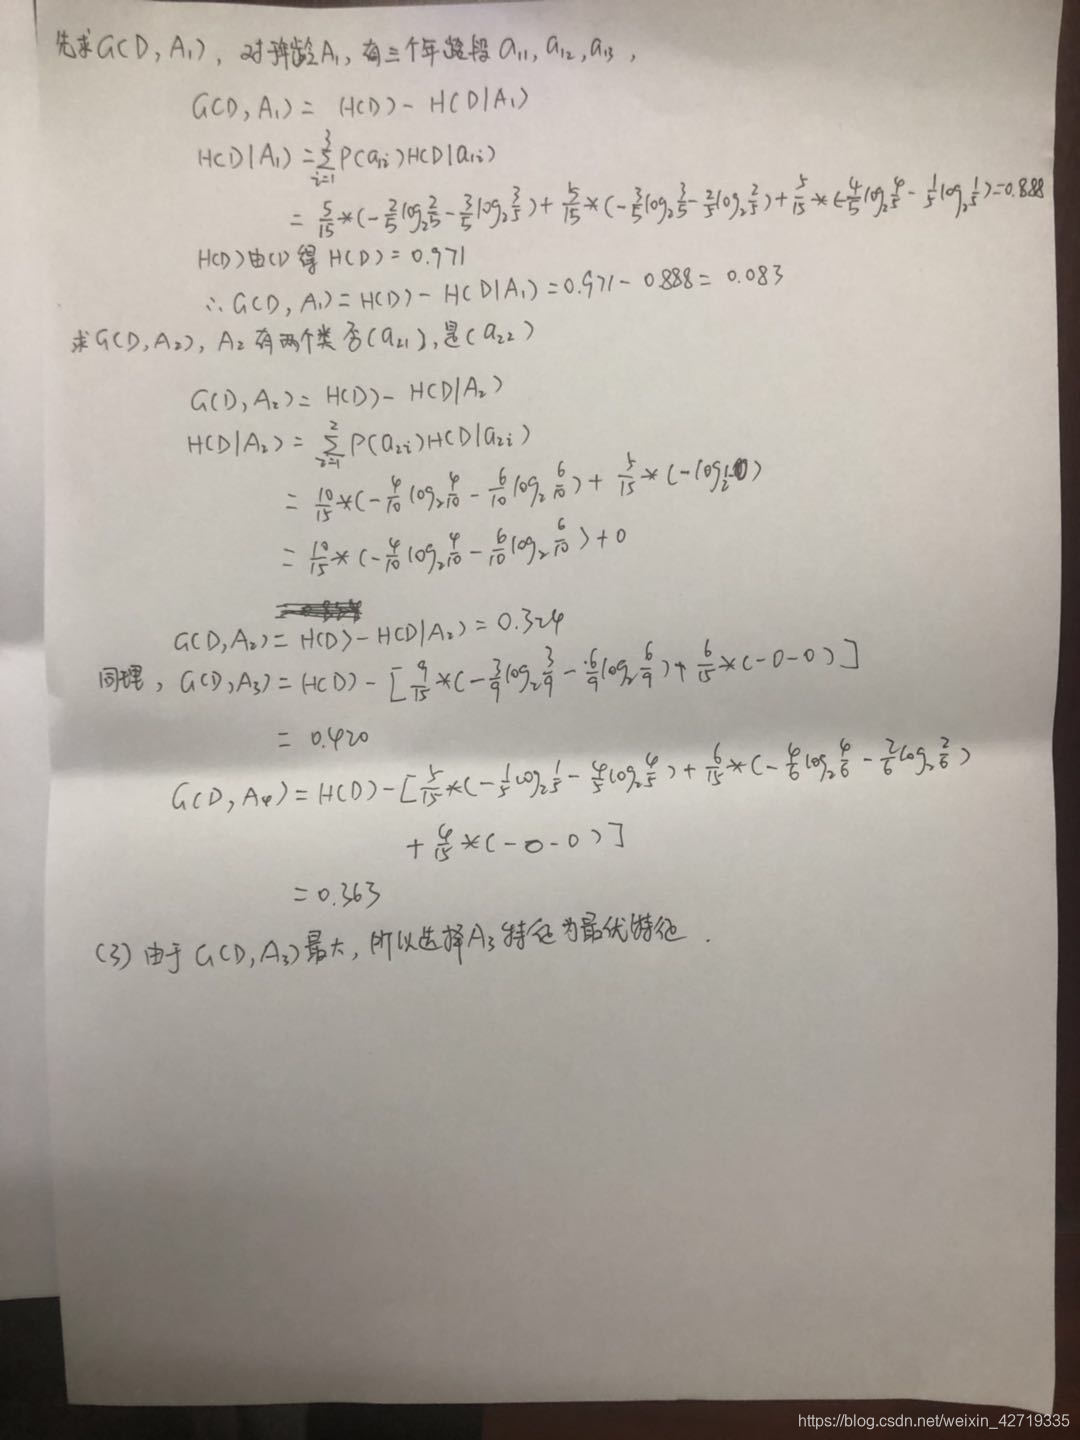 先求G(D, A₁), 对年龄A₁, 有三个年龄段 a₁₁, a₁₂, a₁₃,
G(D, A₁) = H(D) - H(D|A₁)
H(D|A₁) = ∑³ᵢ₌₁ P(a₁ᵢ)H(D|a₁ᵢ)
= 5/15 * (-2/5 log₂ 2/5 - 3/5 log₂ 3/5) + 5/15 * (-3/5 log₂ 3/5 - 2/5 log₂ 2/5) + 5/15 * (-4/5 log₂ 4/5 - 1/5 log₂ 1/5) = 0.888
H(D)由(1)得 H(D) = 0.971
∴ G(D, A₁) = H(D) - H(D|A₁) = 0.971 - 0.888 = 0.083
求G(D, A₂), A₂有两个类 否(a₂₁), 是(a₂₂)
G(D, A₂) = H(D) - H(D|A₂)
H(D|A₂) = ∑²ᵢ₌₁ P(a₂ᵢ)H(D|a₂ᵢ)
= 10/15 * (-4/10 log₂ 4/10 - 6/10 log₂ 6/10) + 5/15 * (-log₂1-0)
= 10/15 * (-4/10 log₂ 4/10 - 6/10 log₂ 6/10) + 0
G(D, A₂) = H(D) - H(D|A₂) = 0.324
同理, G(D, A₃) = H(D) - [9/15 * (-3/9 log₂ 3/9 - 6/9 log₂ 6/9) + 6/15 * (-0-0)]
= 0.420
G(D, A₄) = H(D) - [5/15 * (-1/5 log₂ 1/5 - 4/5 log₂ 4/5) + 6/15 * (-4/6 log₂ 4/6 - 2/6 log₂ 2/6)
+ 4/15 * (-0-0)]
= 0.363
(3) 由于 G(D, A₃)最大, 所以选择A₃特征为最优特征.
https://blog.csdn.net/weixin_42719335